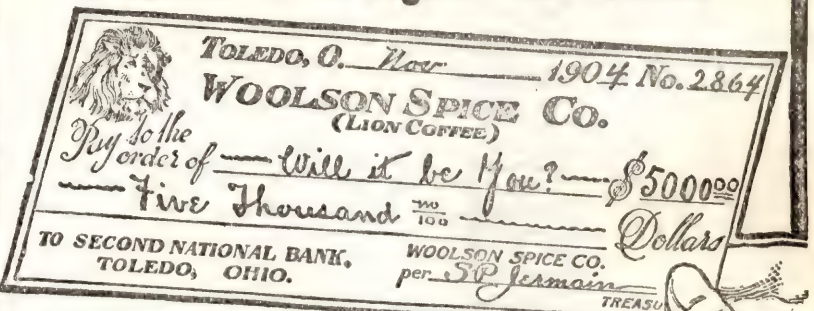 TOLEDO, O. Nov 1904 No. 2864
WOOLSON SPICE CO.
(LION COFFEE)
Pay to the
order of Will it be You? $5000 00
Five Thousand no/100 Dollars
TO SECOND NATIONAL BANK,
TOLEDO, OHIO.
WOOLSON SPICE CO.
per S P Jermain
TREASU